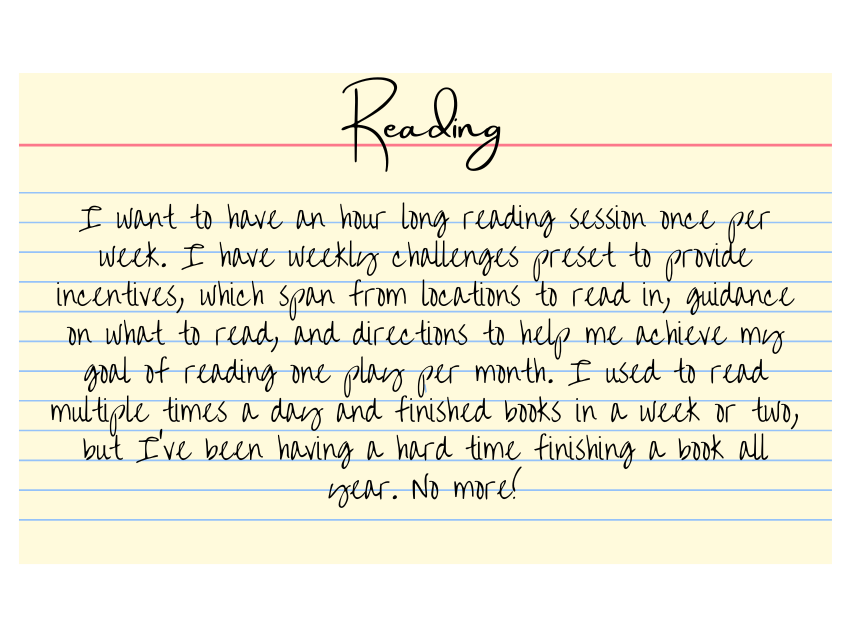 Reading
I want to have an hour long reading session once per
week. I have weekly challenges preset to provide
incentives, which span from locations to read in, guidance
on what to read, and directions to help me achieve my
goal of reading one play per month. I used to read
multiple times a day and finished books in a week or two,
but I've been having a hard time finishing a book all
year. No more!